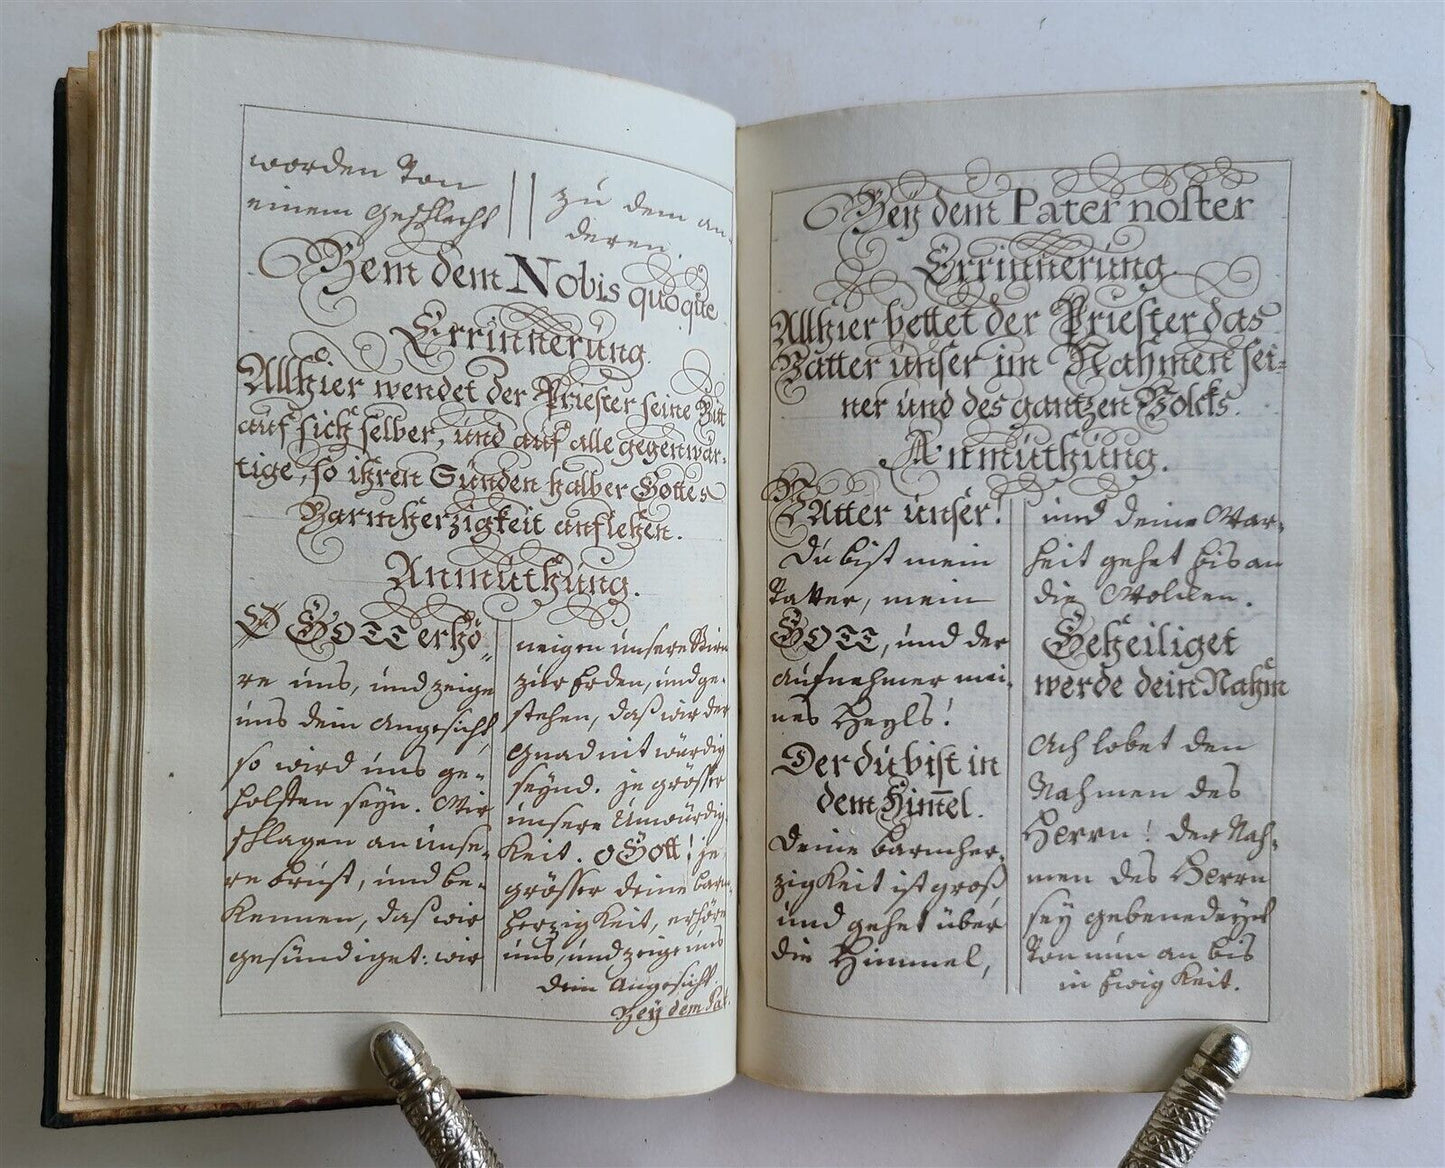 worden von
einem Geschlecht
zu dem an-
deren.
Beÿ dem Nobis quoque
Errinnerung.
Allhier wendet der Priester seine Bitt
auf sich selber, und auf alle gegenwär-
tige, so ihren Sünden halber Gottes
Barmherzigkeit anflehen.
Anmuthung.
O GOTT erhö-
re uns, und zeige
uns dein Angesicht
so wird uns ge-
holffen seyn. Wir
schlagen an unse-
re brust, und be-
kennen, daß wir
gesündiget: wir
neigen unsere Stirn
zur Erden, und ge-
stehen, daß wir der
Gnad nit würdig
seynd. je grösser
unsere Unwürdig-
keit. o Gott! je
grösser deine barm-
herzigkeit, erhöre
uns, und zeige uns
dein Angesicht
Beÿ dem Pat.
Beÿ dem Pater noster
Errinnerung.
Allhier bettet der Priester das
Vatter unser im Nahmen sei-
ner und des gantzen Volcks.
Anmuthung.
VAtter unser!
Du bist mein
Vatter, mein
GOTT, und der
aufnehmer mei-
nes Heyls!
Der du bist in
dem Him̄el.
Deine barmher-
zigkeit ist groß
und gehet über
die Himmel,
und deine War-
heit gehet bis an
die Wolcken.
Geheiliget
werde dein Nahm
Ach lobet den
Nahmen des
Herrn! der Nah-
men des Herrn
seÿ gebenedeyet
von nun an bis
in Ewigkeit.